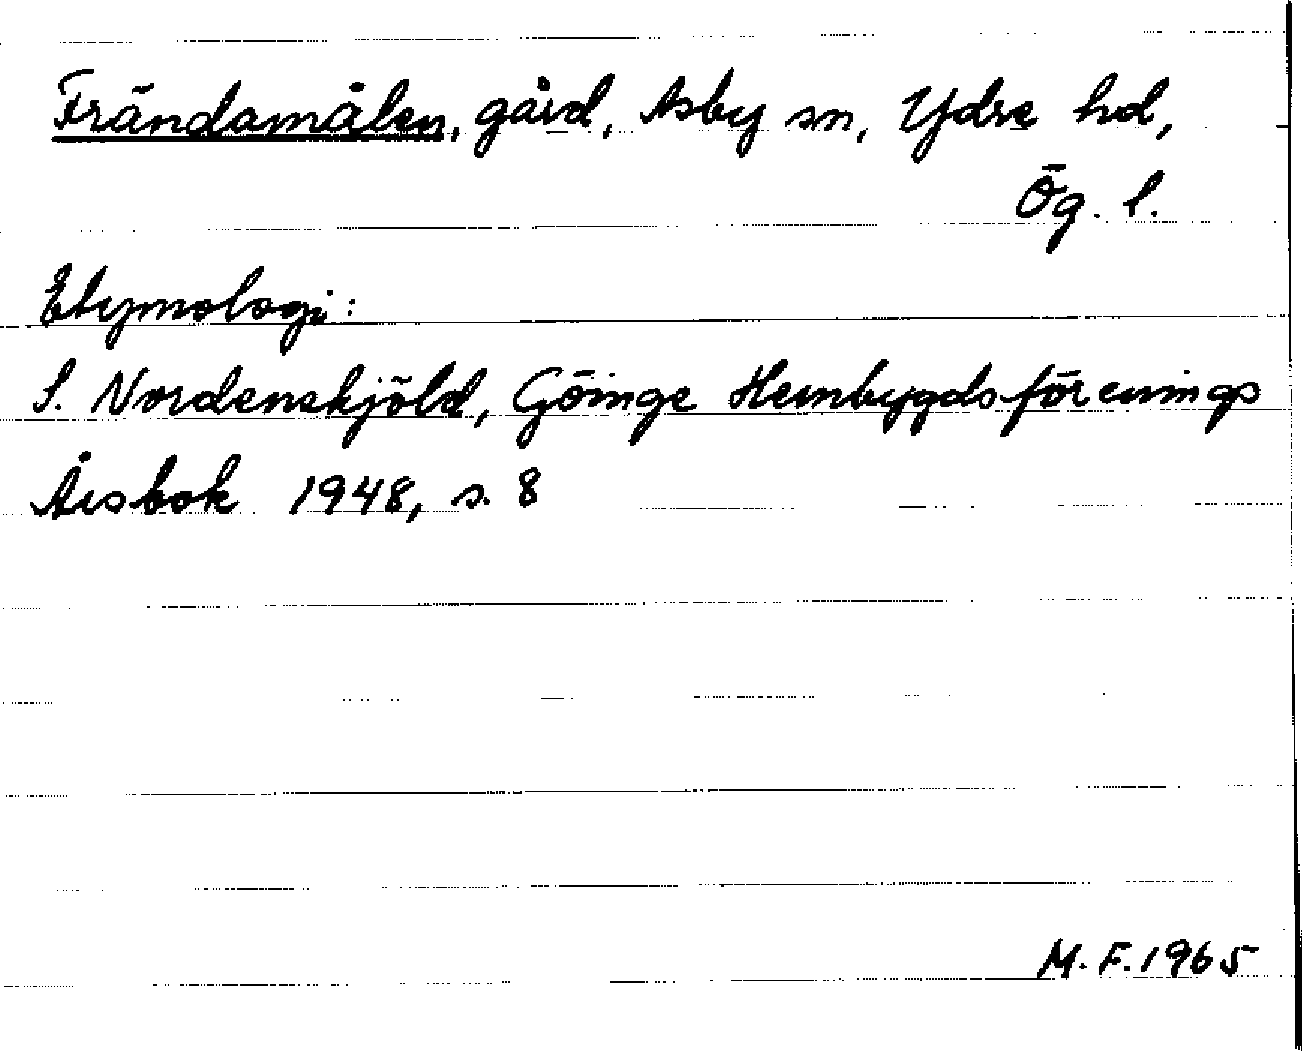 Frändamålen, gård, Asby sn, Ydre hd,
Ög. l.
Etymologi:
S. Nordenskjöld, Göinge Hembygdsförenings
Årsbok 1948, s. 8
M. F. 1965